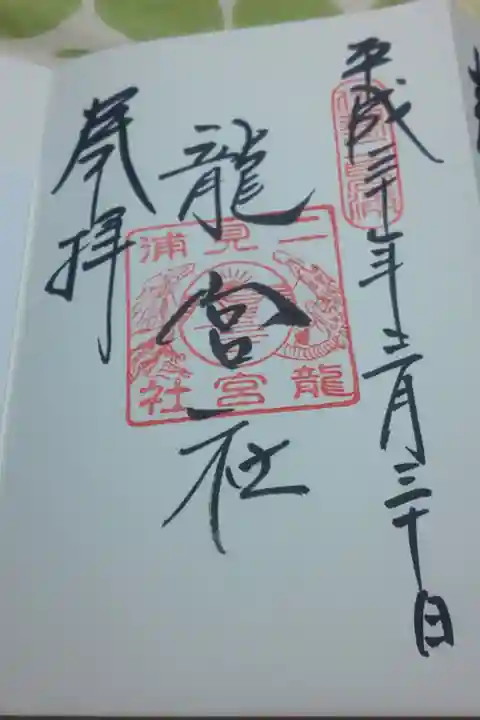 平成二十七年十二月三十日
龍宮社
奉拝
二見浦
龍宮社